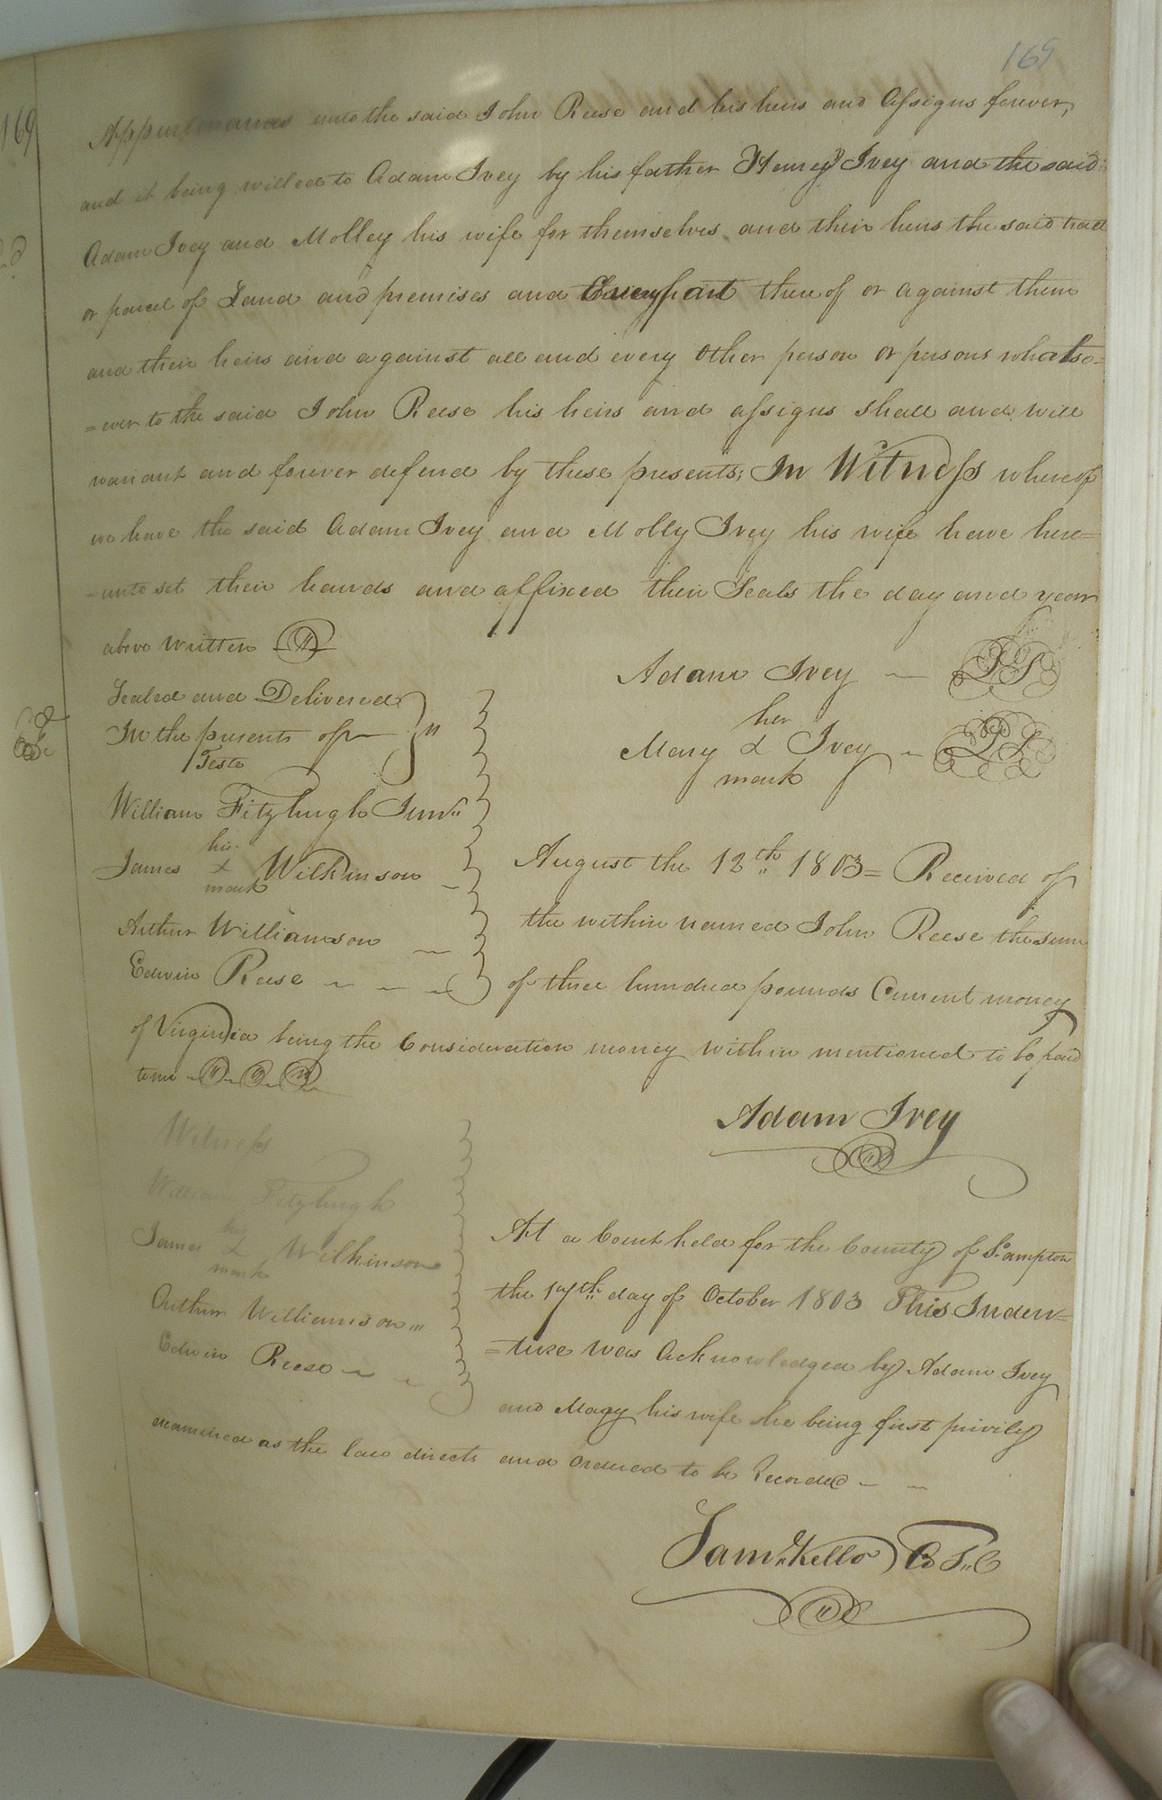 169
169
Appurtenances unto the said John Reese and his heirs and Assigns forever,
and it being willed to Adam Ivey by his father Henry Ivey and the said
Adam Ivey and Molley his wife for themselves and their heirs the said tract
or parcel of Land and premises and Every part there of or against them
and their heirs and against all and every other person or persons whatso=
=ever to the said John Reese his heirs and assigns shall and will
warrant and forever defend by these presents; In Witness whereof
we have the said Adam Ivey and Molly Ivey his wife have here=
=unto set their hands and affixed their Seals the day and year
above written
Adam Ivey — LS
Sealed and Delivered
In the presents of
Teste
her
Mary X Ivey - LS
mark
William Fitzhugh Junr
his
James X Wilkinson
mark
Arthur Williamson
Edwin Reese
August the 12th 1803 = Received of
the within named John Reese the sum
of three hundred pounds Current money
of Virginia being the Consideration money within mentioned to be paid
to me
Adam Ivey
Witness
William Fitzhugh
his
James X Wilkinson
mark
Arthur Williamson
Edwin Reese
At a Court held for the County of So.ampton
the 17th day of October 1803 This Inden=
=ture was Acknowledged by Adam Ivey
and Mary his wife she being first privily
examined as the law directs and Ordered to be Recorded
Saml. Kello C S C